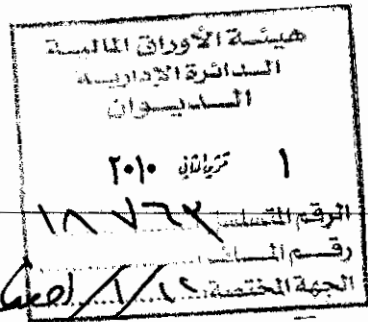 هيئة الأوراق المالية
الدائرة الإدارية
الديوان
١ تشرين الثاني ٢٠١٠
الرقم المتسلسل ١٨٧٦٢
رقم الملف
الجهة المختصة ١٢/١/